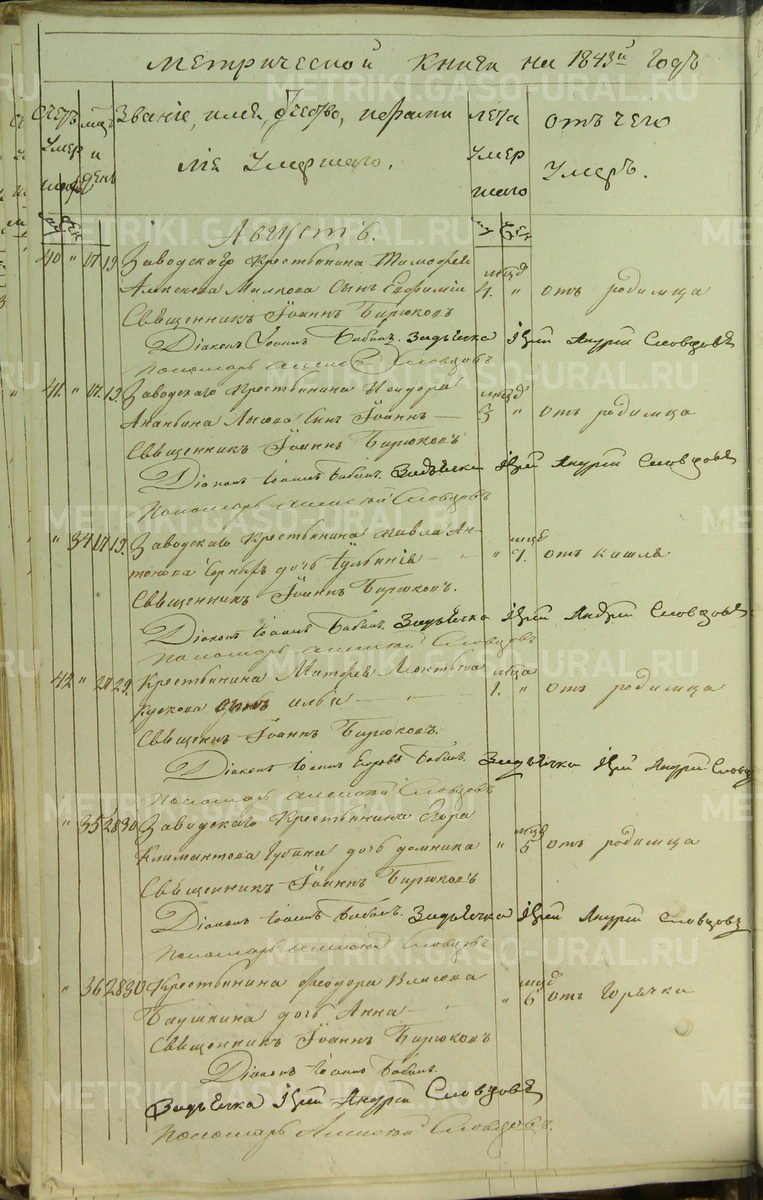 Метрической книги на 1843й годъ
Счетъ умершихъ
мцъ и день
Званіе, имя, очество, и фамилія умершаго.
лета умершаго
отъ чего умеръ.
муж жен
Августъ.
40 " 17 19 Заводскаго Крестьянина Тимофея мцд
Алексеева сынъ Евфимій 4. " отъ родимца
Священникъ Іоаннъ Бирюковъ
Діаконъ Іоаннъ Бабинъ. Задьячка Іерей Андрей Словцовъ
Пономарь Алексей Словцовъ
41. " 17. 19 Заводскаго Крестьянина Исидора мцд
Ананьина сынъ Іоаннъ 3 " отъ родимца
Священникъ Іоаннъ Бирюковъ
Діаконъ Іоаннъ Бабинъ. Задьячка Іерей Андрей Словцовъ
Пономарь Алексей Словцовъ
" 34 17 19. Заводскаго Крестьянина Павла Ан- мцд
тонова дочь Іуліанія " 7. отъ кашля
Священникъ Іоаннъ Бирюковъ.
Діаконъ Іоаннъ Бабинъ. Задьячка Іерей Андрей Словцовъ
Пономарь Алексей Словцовъ
42 " 29. Крестьянина Матфея Леонтьева мцда
сынъ Илья 1. " отъ родимца
Священикъ Іоаннъ Бирюковъ.
Діаконъ Іоаннъ Бабинъ. Задьячка Іерей Андрей Словцовъ
Пономарь Алексей Словцовъ
" 35 28 30 Заводскаго Крестьянина мцд
Климантова Губина дочь Домника " 5 отъ родимца
Священникъ Іоаннъ Бирюковъ
Діаконъ Іоаннъ Бабинъ. Задьячка Іерей Андрей Словцовъ
Пономарь Алексей Словцовъ
" 36 28 30 Крестьянина Феодора Власова мцд
Баушкина дочь Анна " 6 отъ горячки
Священникъ Іоаннъ Бирюковъ
Діаконъ Іоаннъ Бабинъ.
Задьячка Іерей Андрей Словцовъ
Пономарь Алексей Словцовъ.
METRIKI.GASO-URAL.RU